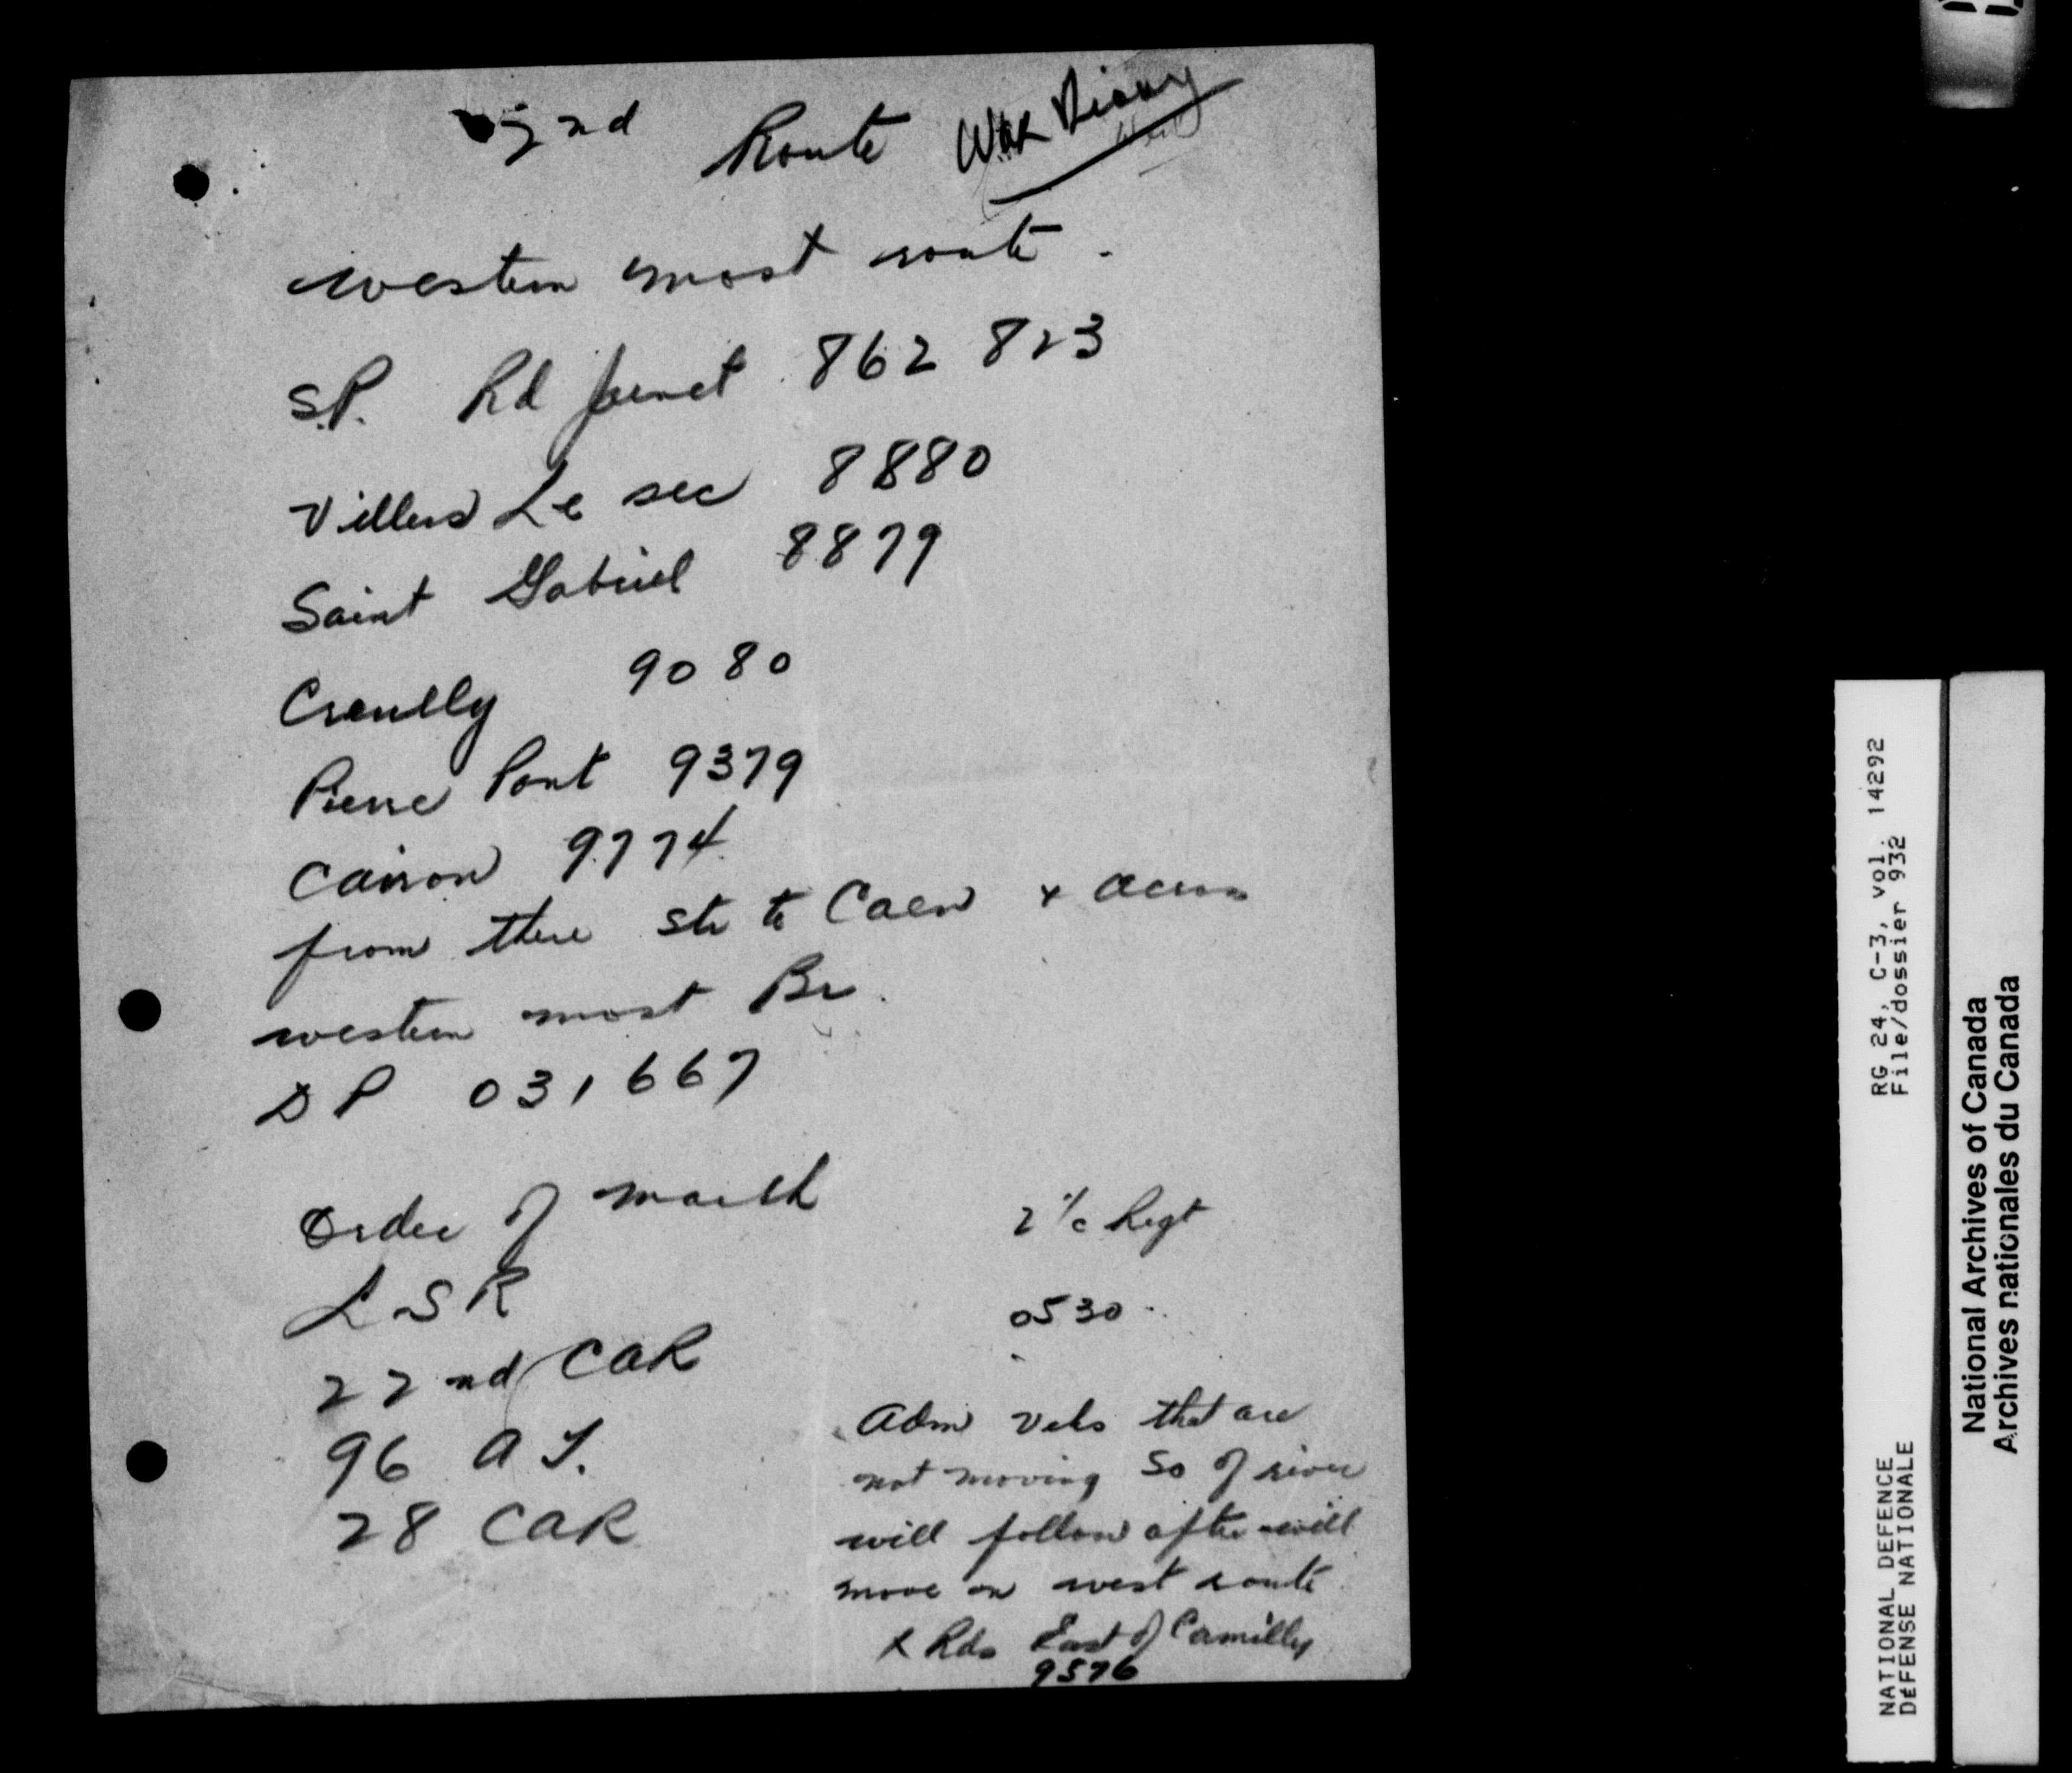 2nd Route War Diary
western most route.
S.P. Rd junct 862 823
Villiers Le sec 8880
Saint Gabriel 8879
Creully 9080
Pierre Pont 9379
Cairon 9774
from there str to Caen & across
western most Br.
DP 031667
Order of march
LSR
22nd CAR
96 A T.
28 CAR
2 i/c Regt
0530.
Adm vehs that are
not moving So of river
will follow after will
move on west route
X Rds East of Camilly
9576
RG 24, C-3, vol. 14292
File/dossier 932
NATIONAL DEFENCE
DÉFENSE NATIONALE
National Archives of Canada
Archives nationales du Canada